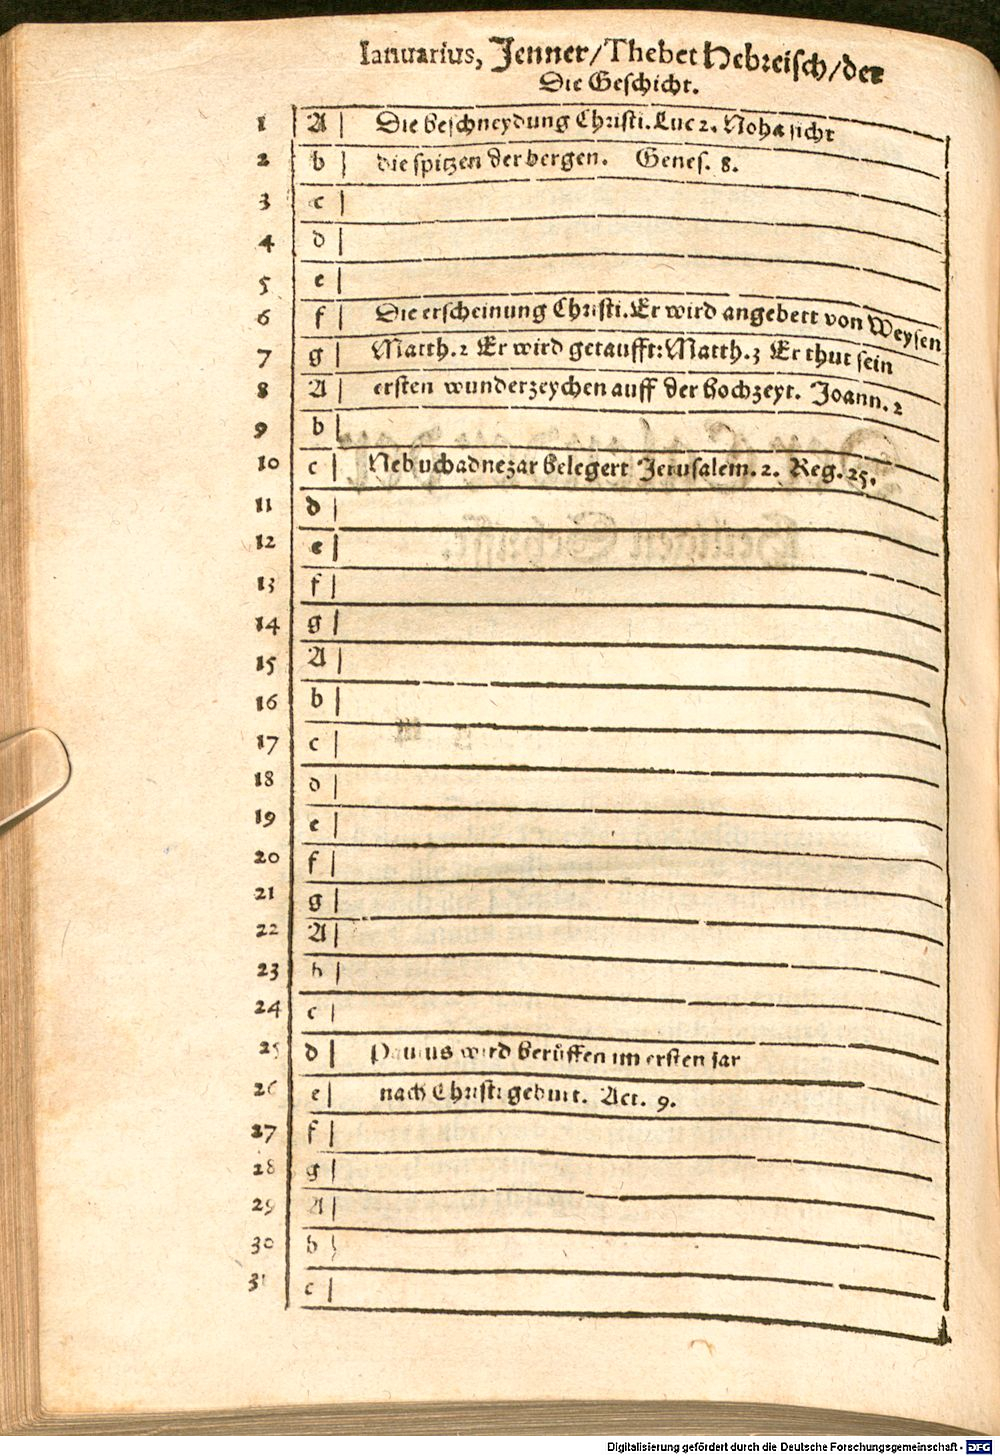 Ianuarius, Jenner/Thebet Hebreisch/der
Die Geschicht.
1 A Die beschneydung Christi. Luc 2. Noha sicht
2 b die spitzen der bergen. Genes. 8.
3 c
4 d
5 e
6 f Die erscheinung Christi. Er wird angebett von Weysen
7 g Matth. 2 Er wird getaufft: Matth. 3 Er thut sein
8 A ersten wunderzeychen auff der hochzeyt. Joann. 2
9 b
10 c Nebuchadnezar belegert Jerusalem. 2. Reg. 25.
11 d
12 e
13 f
14 g
15 A
16 b
17 c
18 d
19 e
20 f
21 g
22 A
23 b
24 c
25 d Paulus wird berůffen im ersten jar
26 e nach Christi geburt. Act. 9.
27 f
28 g
29 A
30 b
31 c
Digitalisierung gefördert durch die Deutsche Forschungsgemeinschaft - DFG